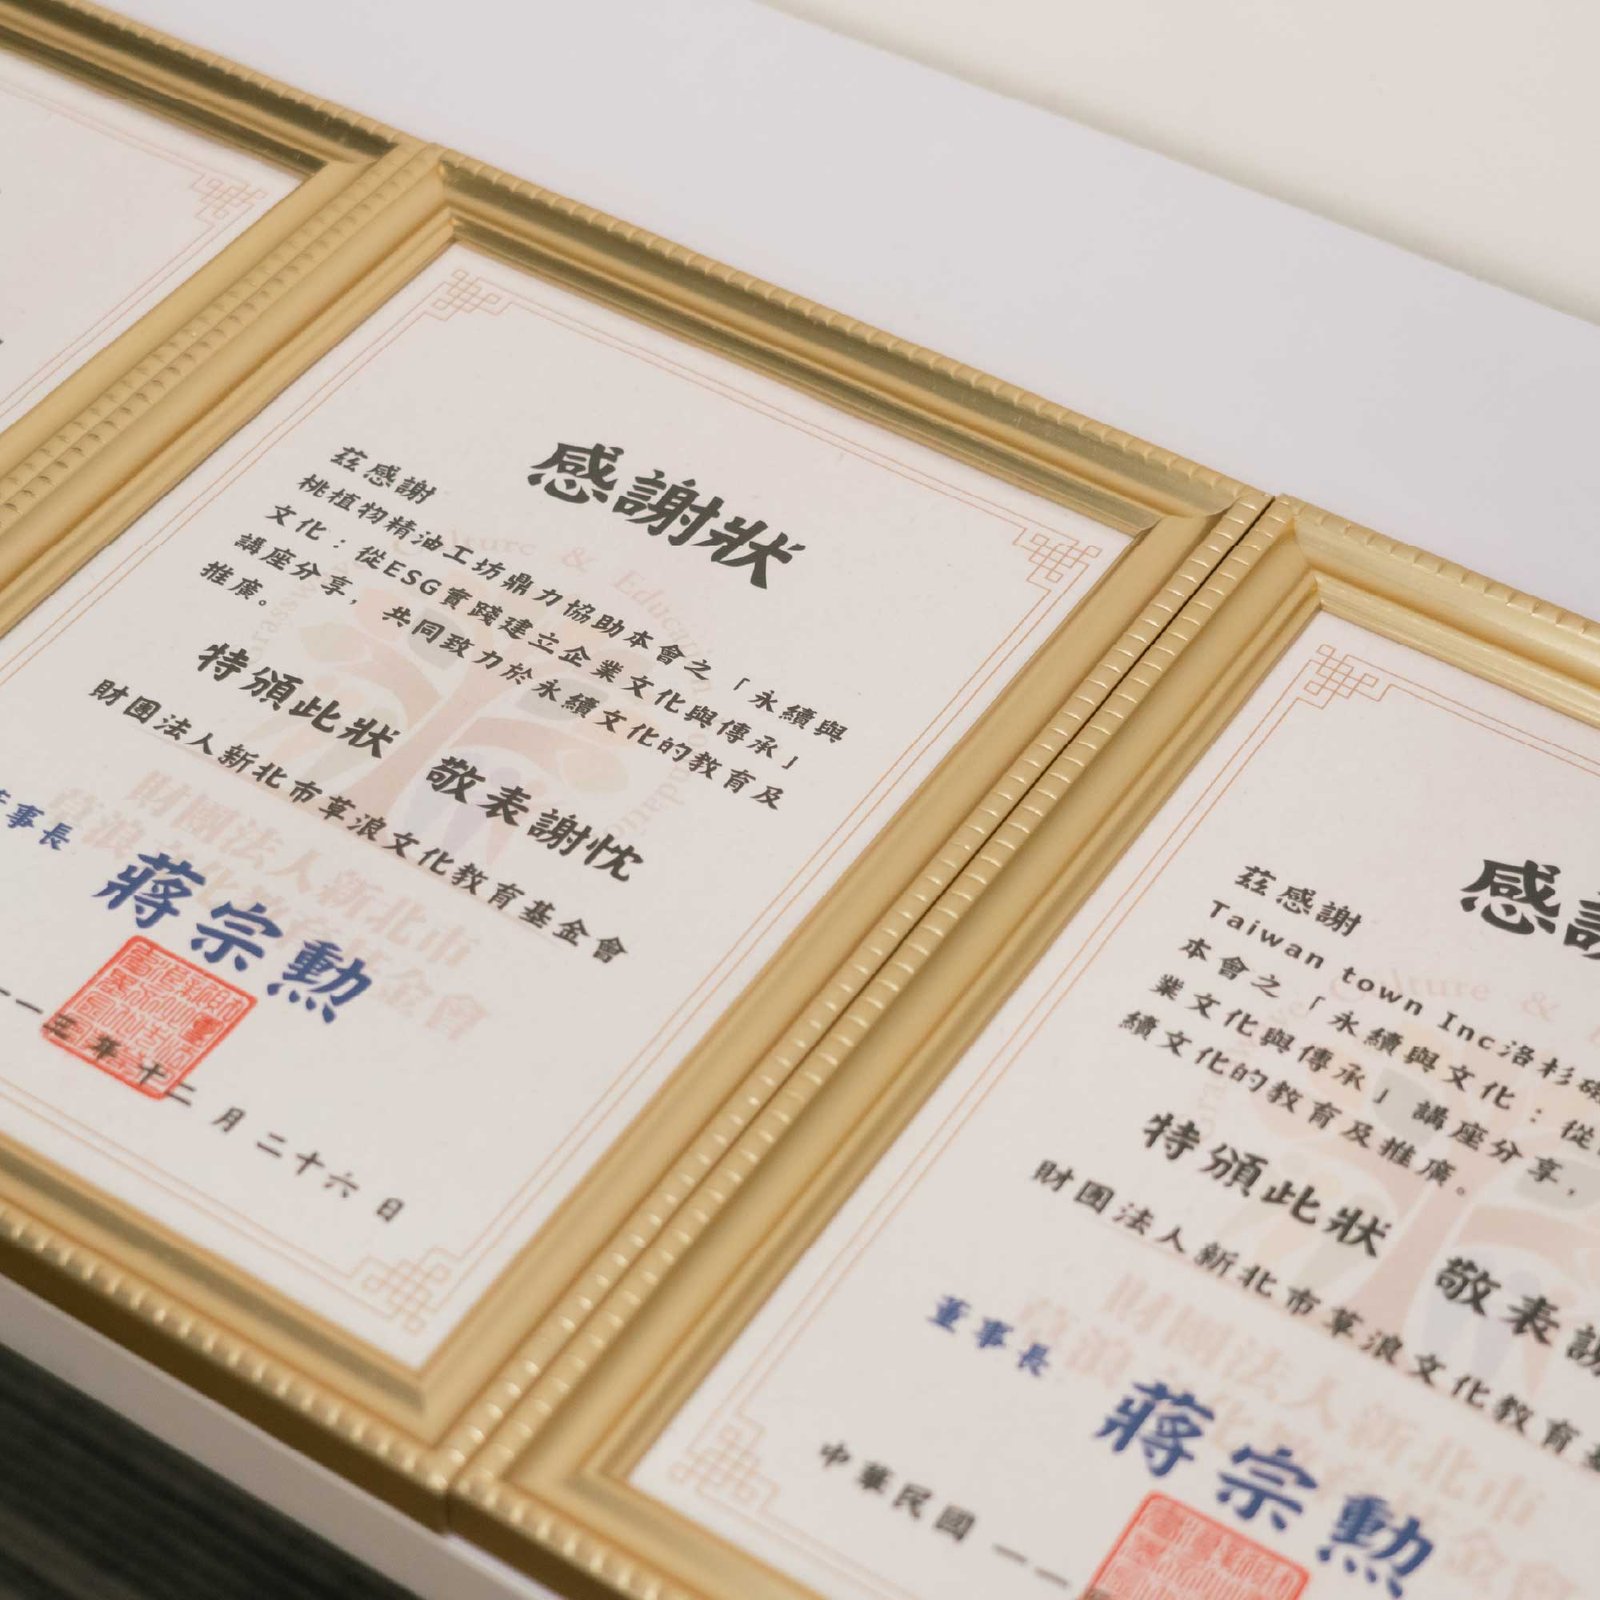 感謝狀
茲感謝
桃植物精油工坊鼎力協助本會之「永續與
文化：從ESG實踐建立企業文化與傳承」
講座分享，共同致力於永續文化的教育及
推廣。
特頒此狀 敬表謝忱
財團法人新北市草浪文化教育基金會
事長
蔣宗勳
一一三年十二月二十六日
茲感謝
Taiwan town Inc洛杉
本會之「永續與文化：從
業文化與傳承」講座分享，
續文化的教育及推廣。
特頒此狀 敬表
財團法人新北市草浪文化教育
董事長
蔣宗勳
中華民國一一